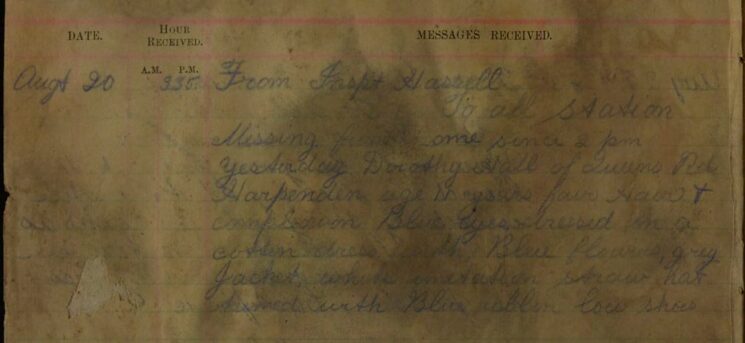 DATE. HOUR RECEIVED. MESSAGES RECEIVED.
A.M. P.M.
Augt 20 From Inspt Hassell
To all Station
Missing from home since 2 pm
yesterday Dorothy Hall of Queens Rd
Harpenden age years fair Hair &
complexion Blue Eyes dressed in a
cotton dress with Blue flowers, grey
Jacket, white imitation straw hat
trimed with Blue ribbon low shoes